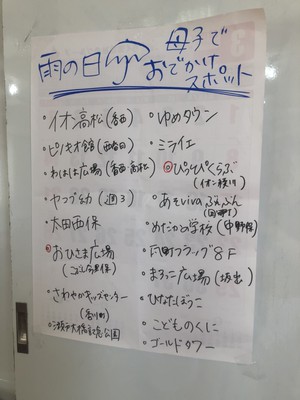 雨の日 母子で
おでかけ
スポット
・イオン高松(香西)
・ピノキオ館(西春日)
・わはは広場(香西 高松)
・ヤマダ幼(週3)
・太田西保
おひさま広場
・さわやかキッズセンター
(香川町)
・瀬戸大橋記念公園
・ゆめタウン
・ミライエ
ぴっぴくらぶ
(イオン綾川)
・あそviva ぶんぶん
・めだかの学校(中野保)
・瓦町フラッグ8F
・まろっこ広場(坂出)
・ひなたぼっこ
・こどものくに
・ゴールドタワー